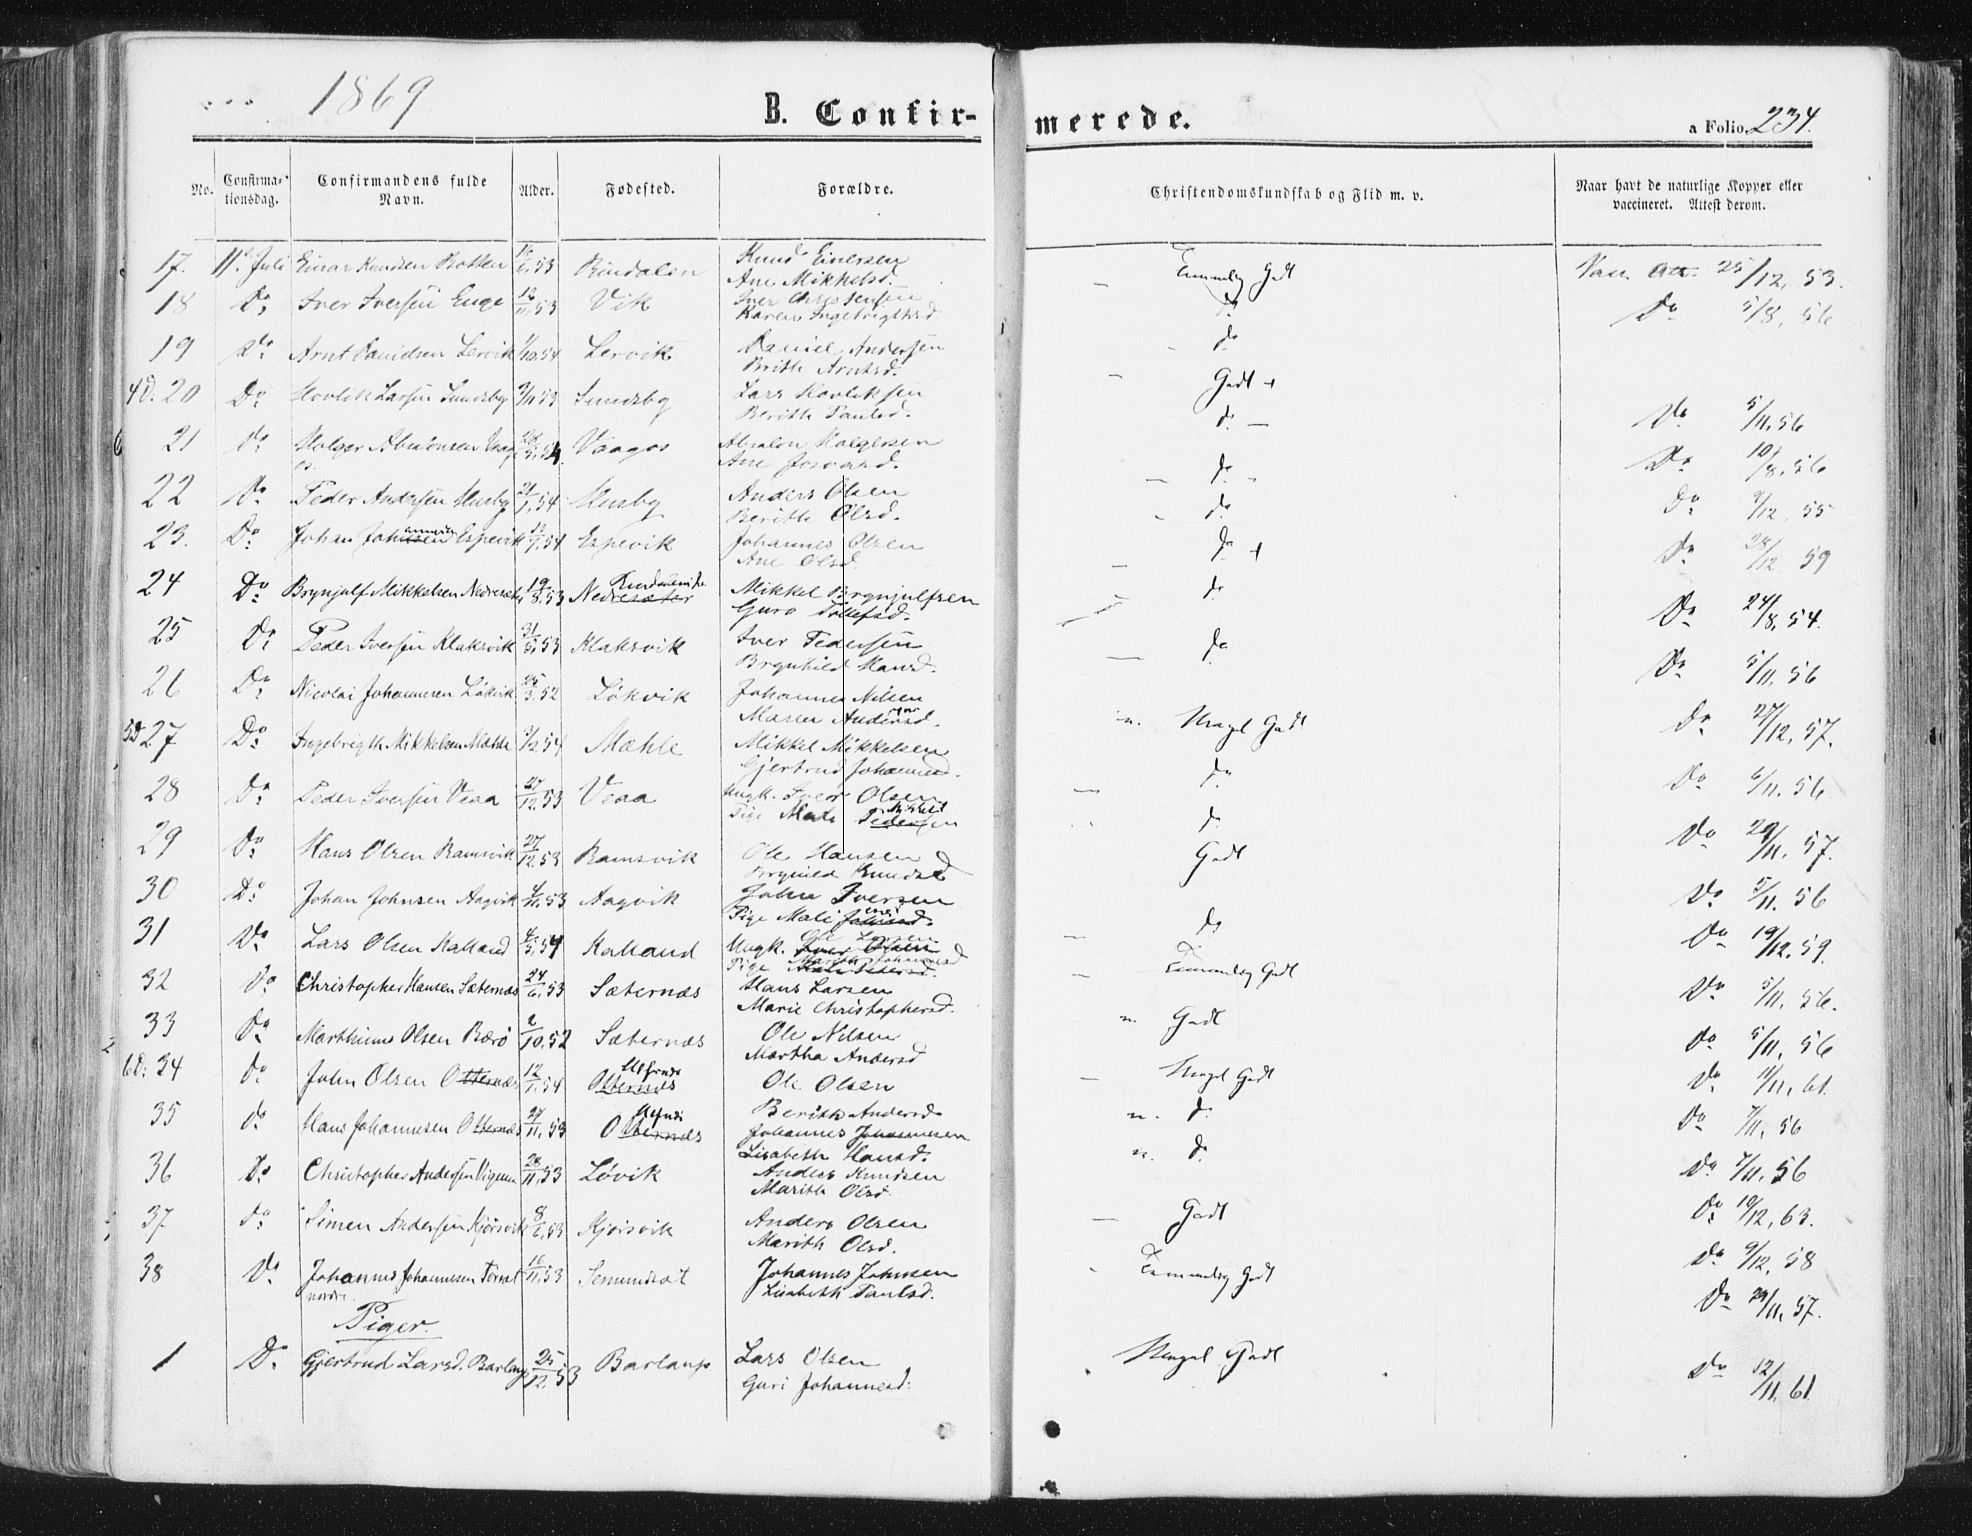 1869
B. Confir-
merede.
a Folio 234.
No.
Confirma-
tionsdag.
Confirmandens fulde
Navn.
Alder.
Fødested.
Forældre.
Christendomskundskab og Flid m. v.
Naar havt de naturlige Kopper eller
vaccineret. Attest derom.
17. 11' Juli Einar Knudsen Botten 6,53 Rindalen Knud Einersen Temmelig Godt Vacc. att. 25/12, 53.
Ane Mikkelsd.
18 Do Iver Iversen Enge 12/11,53 Vik Iver Christensen do Do 5/8, 56
Karen Ingebrigtsd
19 Do Arnt Danielsen Lervik 1/10,54 Lervik Daniel Andersen do
Brith Arntsd.
4D. 20 Do Hovlik Larsen Smedsby 9/11 53 Smedsby Lars Hovliksen Godt + Do 5/11,56
Berith Paulsd.
21 Do Holger Absalonsen Vaag 5,54. Vaagos Absalon Holgersen do Do 10/8,56
os Ane
22 Do Peder Andersen Husby 21/1,54 Husby Anders Olsen do Do 9/12, 55
Berith Olsd.
23. Do Johan Johansen Espevik 1,54 Espevik Johannes Olsen do Do 28/12, 59
Ane Olsd
24 Do Brynjulf Mikkelsen Nedresæter 19/8,53 Nedresæter Mikkel Brynjulfsen do + Do 24/8,54.
Guro Tollefsd.
25 Do Peder Iversen Klaksvik 31/5,53 Klaksvik Iver Pedersen do Do 5/11,56
Brynhild Hansd.
26 Do Nicolai Johannesen Løkvik 25/3,52 Løkvik Johannes Nilsen do Do 27/12,57.
Maren Andersd.
5D 27 Do Ingebrigth Mikkelsen Mæhle 9/2,54 Mæhle Mikkel Mikkelsen Meget Godt Do 6/11,56
Gjertrud Johannesd.
28 Do Peder Iversen Veaa 27/12,53 Veaa Ungk. Iver Olsen do Do 29/11,57.
Pige Mali Pedersen
29 Do Hans Olsen Ramsvik 27/12,53 Ramsvik Ole Hansen do Do 5/11.56
Brynild Knudsd
30 Do Johan Johnsen Aagvik 4/11,53 Aagvik John Iversen Godt Do 19/12,59.
Pige Mali
31 Do Lars Olsen Kalland 4/5,54 Kalland Ole Larsen do Do 5/11,56.
Ungk. Iver Olsen
Pige Marith Johannesd
32 Do Christopher Hansen Sæternæs 24/6,53 Sæternæs Hans Larsen Temmelig Godt Do 5/11, 56
Marie Christophersd.
33 Do Marthinus Olsen Bærø 2/10,52 Sæternæs Ole Nilsen Godt Do 11/11,61.
Martha Andersd
6D. 34 do John Olsen Otternæs 12/1,54 Otternæs Ole Olsen Meget Godt Do 7/11,56
Berith Andersd
35 do Hans Johannesen Otternæs 27/11,53 Otternæs Johannes Johannesen do Do 7/11,56
Lisabeth Hansd.
36 Do Christopher Andersen Vigum 28/11,53 Løvik Anders Knudsen do Do 19/12,63.
Marith Olsd.
37 do Simen Andersen Kjørsvik 8/6,53 Kjørsvik Anders Olsen Godt Do 9/12,58
Marith Olsd.
38 Do Johannes Johannesen 16/11,53 Johannes Johnsen Temmelig Godt Do 29/11,57.
nordre. Lisabeth Paulsd.
Piger.
1 Do Gjertrud Larsd. Barlaup 25/12,53 Barlaup Lars Olsen Meget Godt Do 12/11,61.
Guri Johannesd.